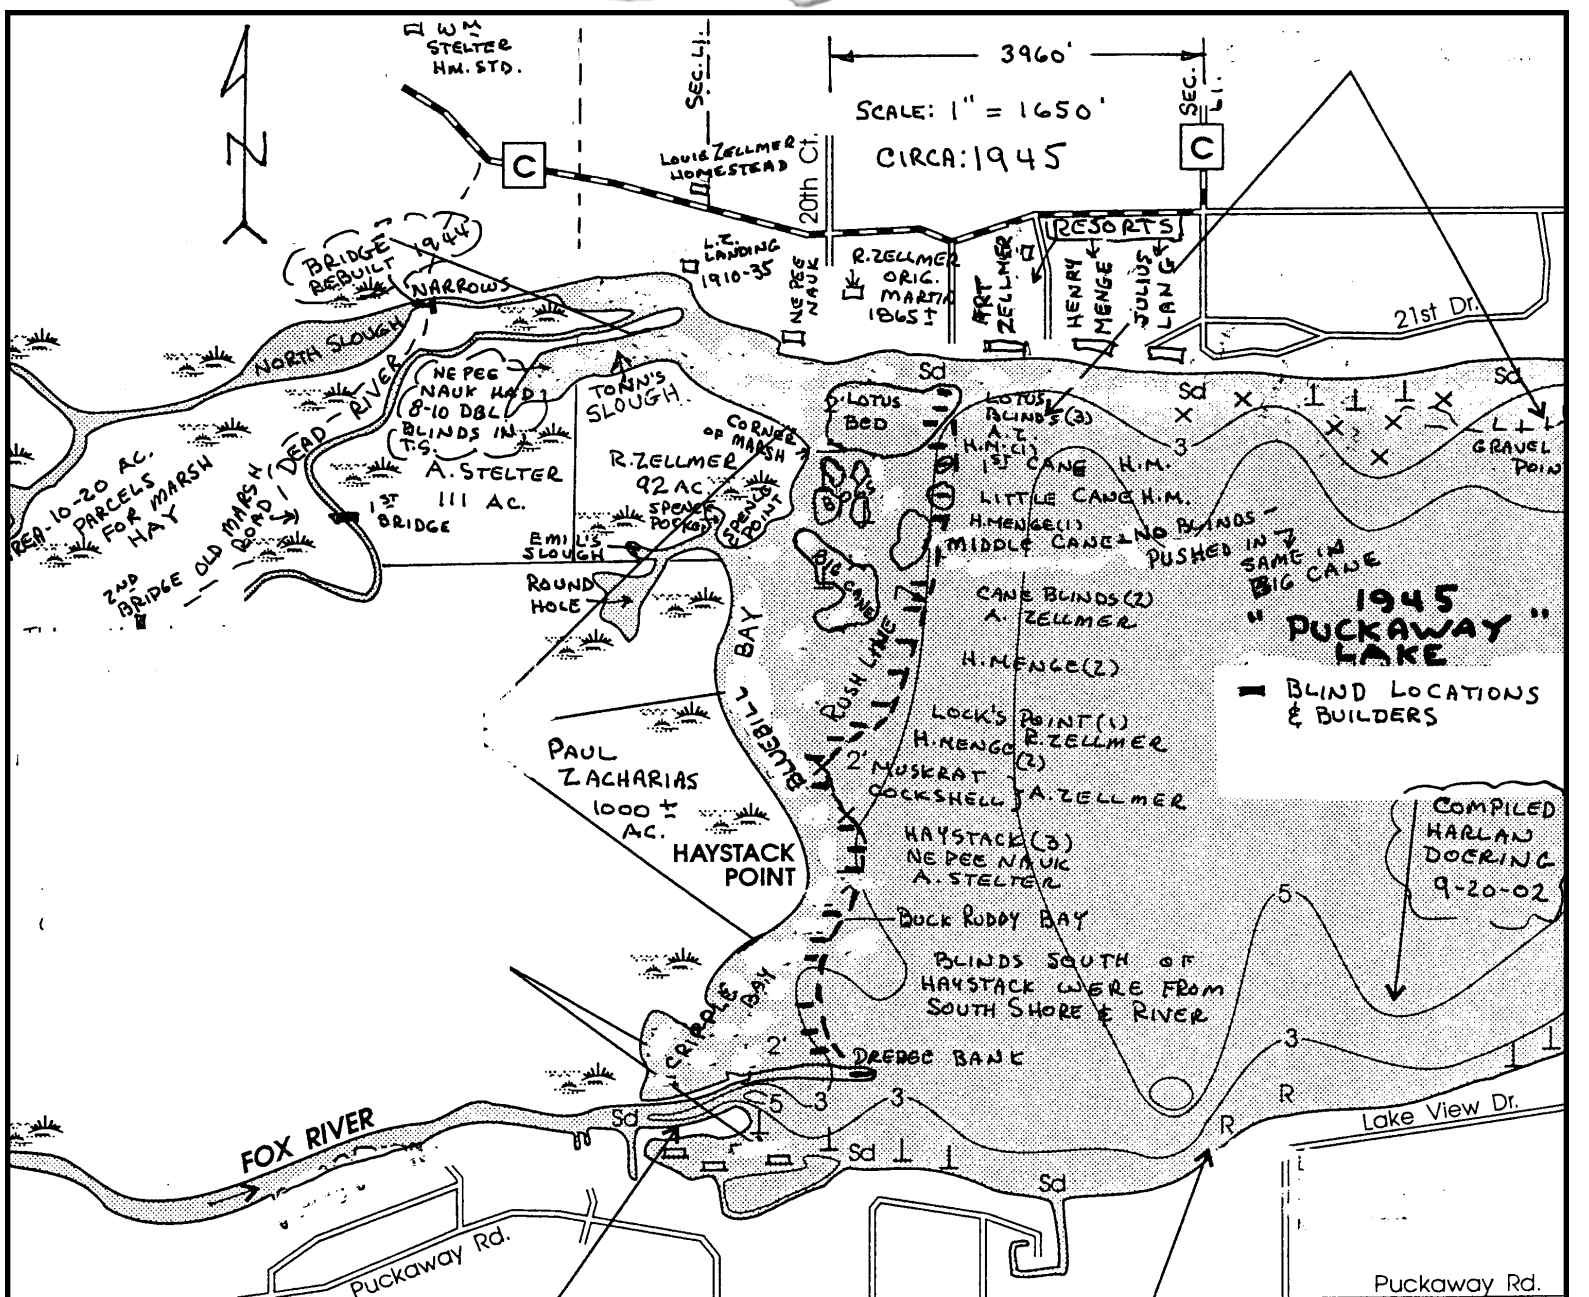 WM
STELTER
HM. STD.
SEC. LI.
3960'
SCALE: 1" = 1650'
CIRCA: 1945
SEC.
LI.
C
C
N
LOUIE ZELLMER
HOMESTEAD
20th Ct.
BRIDGE
REBUILT
1944
NARROWS
L.Z.
LANDING
1910-35
NE PEE
NAUK
R. ZELLMER
ORIG.
MARTIN
1865±
ART
ZELLMER
RESORTS
HENRY
MENGE
JULIUS
LANG
21st Dr.
NORTH SLOUGH
DEAD RIVER
NE PEE
NAUK HAD
8-10 DBL.
BLINDS IN
T.S.
TONN'S
SLOUGH
CORNER
OF MARSH
Sd
Sd
Sd
LOTUS
BED
LOTUS
BLINDS (3)
A.Z.
H.M.(1)
1ST CANE H.M.
LITTLE CANE H.M.
H.MENGE(1)
MIDDLE CANE - NO BLINDS -
PUSHED IN
SAME IN
BIG CANE
3
GRAVEL
POIN
AREA-10-20 AC.
PARCELS
FOR MARSH
HAY
OLD MARSH
ROAD
A. STELTER
111 AC.
1ST
BRIDGE
2ND
BRIDGE
R. ZELLMER
92 AC
SPENCE
POCKETS
SPENCE
POINT
EMIL'S
SLOUGH
ROUND
HOLE
BOGS
BIG
CANE
CANE BLINDS (2)
A. ZELLMER
1945
"PUCKAWAY"
LAKE
BLIND LOCATIONS
& BUILDERS
H. MENGE (2)
BLUEBILL BAY
RUSH LINE
LOCK'S POINT (1)
R. ZELLMER
H. MENGE (2)
2'
MUSKRAT
COCKSHELL } A. ZELLMER
PAUL
ZACHARIAS
1000 ±
AC.
HAYSTACK
POINT
HAYSTACK (3)
NE PEE NAUK
A. STELTER
COMPILED
HARLAN
DOERING
9-20-02
5
BUCK RUDDY BAY
BLINDS SOUTH OF
HAYSTACK WERE FROM
SOUTH SHORE & RIVER
CRIPPLE BAY
2'
DREDGE BANK
3
5
3
3
Sd
Sd
Sd
R
R
FOX RIVER
Lake View Dr.
Puckaway Rd.
Puckaway Rd.